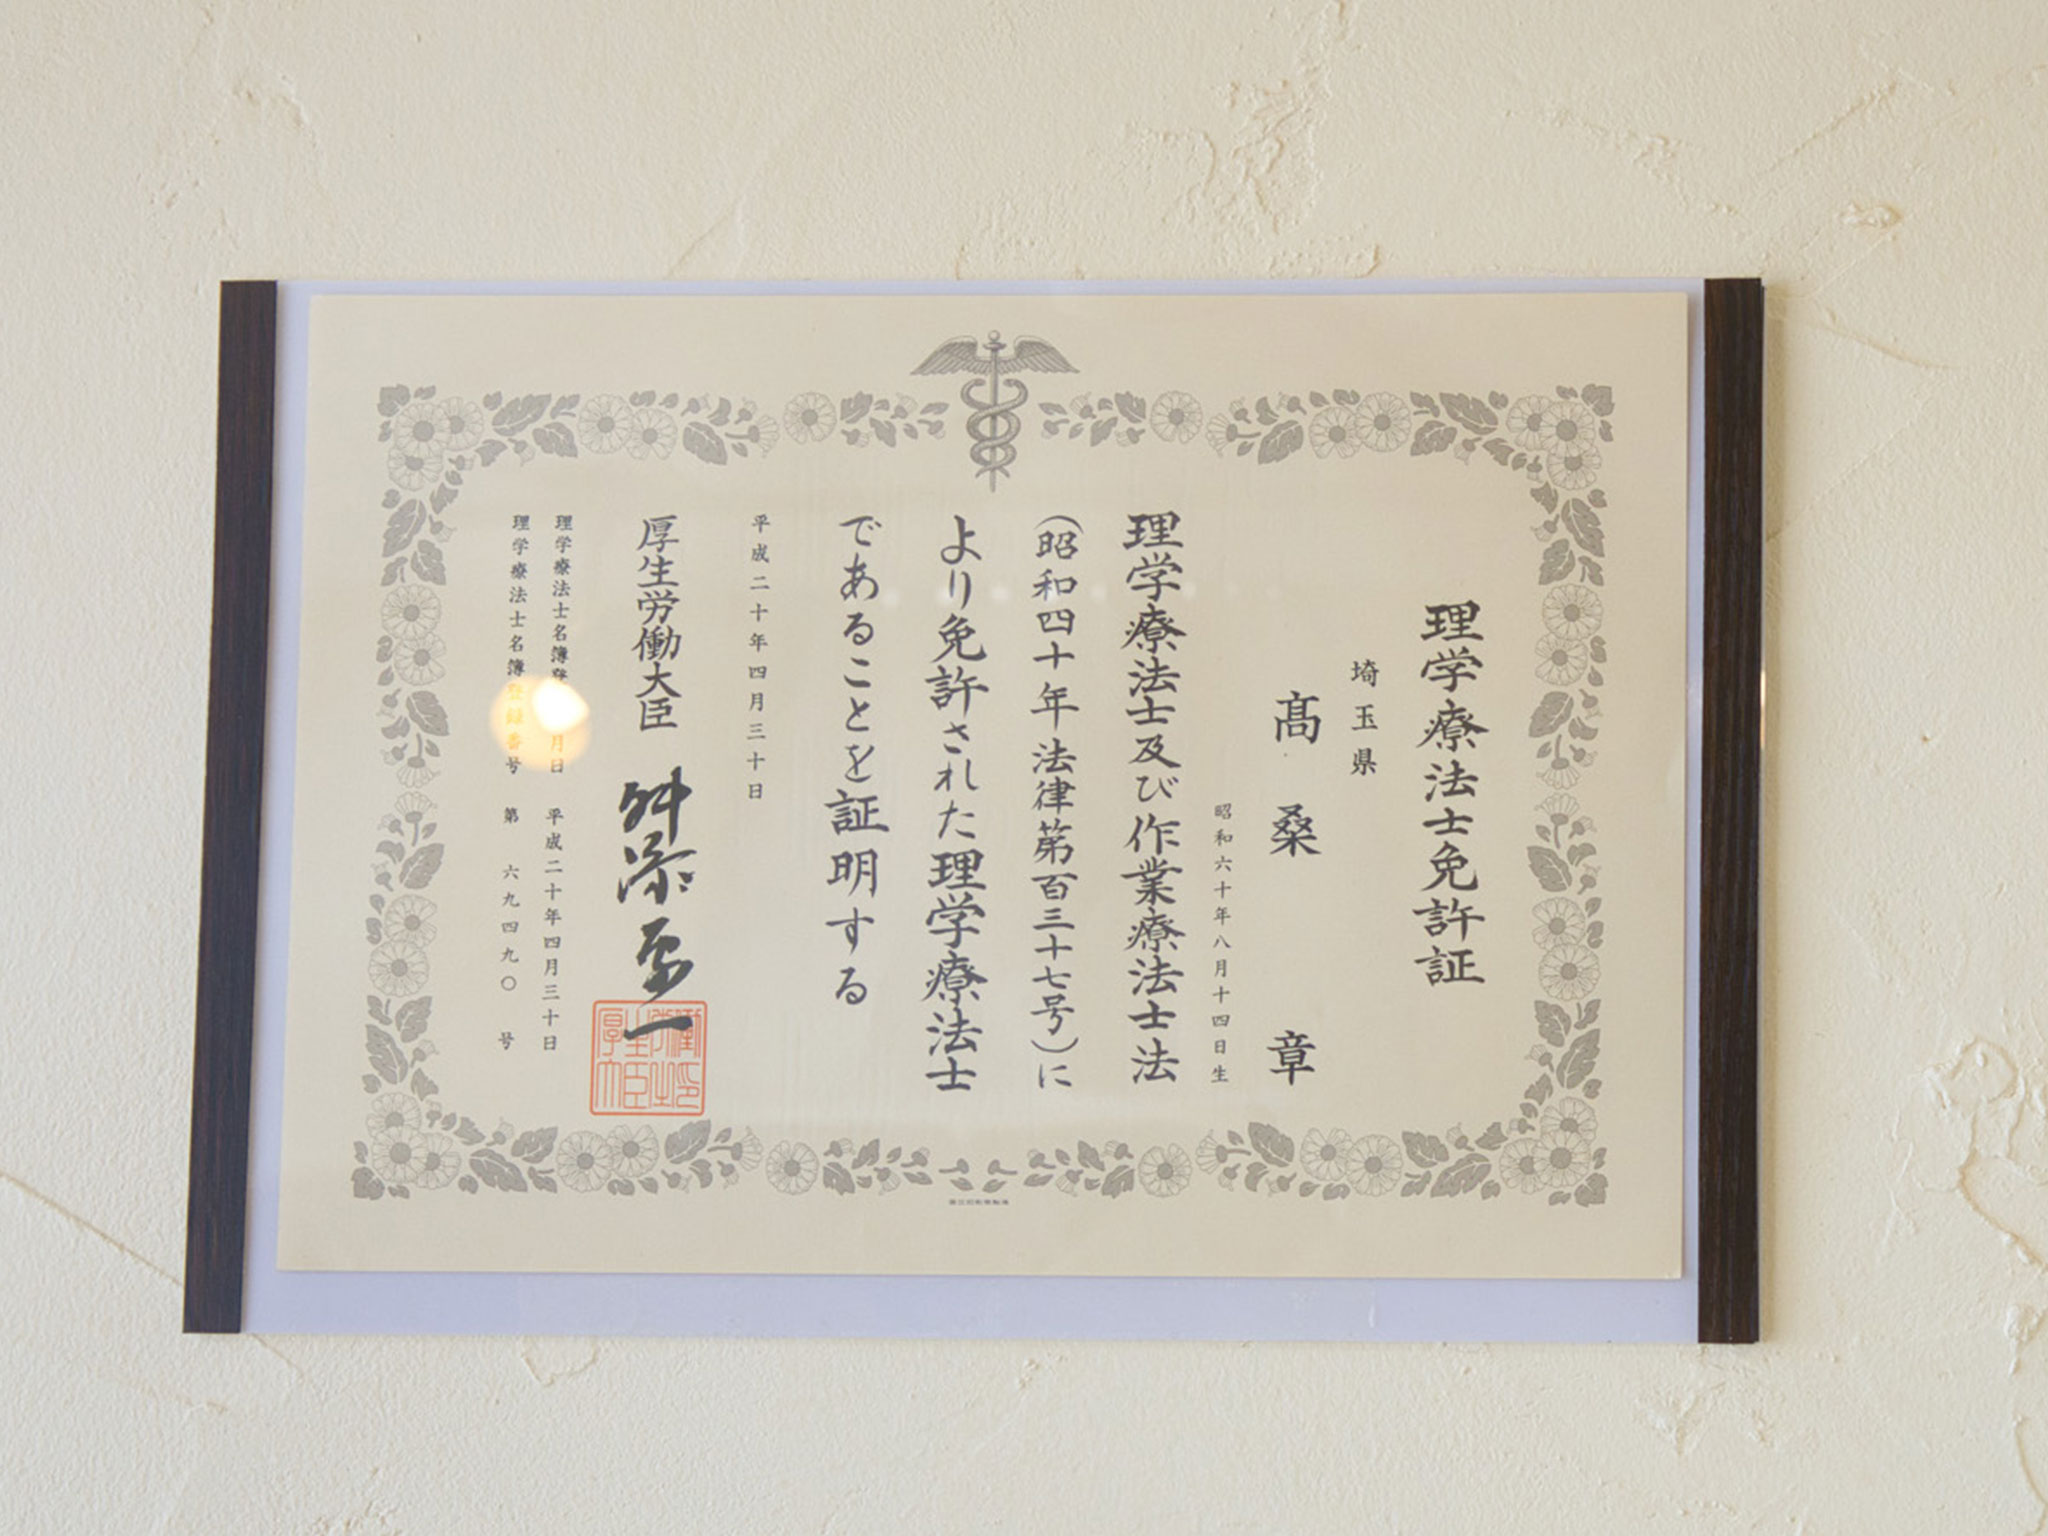 理学療法士免許証
埼玉県
髙桑 章
昭和六十年八月十四日生
理学療法士及び作業療法士法
(昭和四十年法律第百三十七号)に
より免許された理学療法士
であることを証明する
平成二十年四月三十日
厚生労働大臣 舛添要一
理学療法士名簿登 月日 平成二十年四月三十日
理学療法士名簿登録番号 第 六九四九〇 号